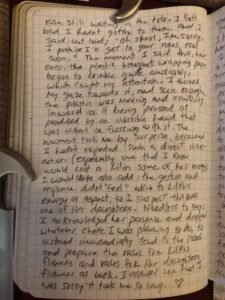 still waiting in the tote. I felt
bad I hadn't gotten to them and I
said out loud, "Oh shoot, I'm sorry,
I promise I'll get to your roses, real
soon." The moment I said this,
the plastic bouquet wrapping paper
began to crinkle quite audibly
which caught my attention. I turned
my gaze towards it, and sure enough
the plastic was moving and crinkling
inward as if being pressed or
produced by an invisible hand that
was intent on fussing with it. The
moment took me by surprise because
I hadn't expected such a direct inter-
action (especially one that I know
would come of Lilin some of her
I would like to also add: the gesture and
response didn't "feel" akin to Lilith's
energy or aspect, so I suspect this was
one of her daughters. Needless to say,
I acknowledged her presence and dropped
whatever chore I was planning to do, to
instead immediately tend to the roses
and prepare the vases for Lilith's
flowers and vases for her daughters
flowers as well. I assured her that I
was sorry it took me so long. ♡